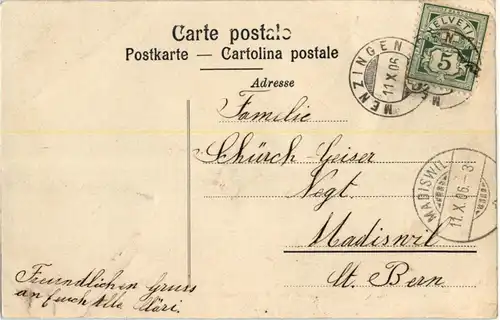 Carte postale
Postkarte — Cartolina postale
Adresse
HELVETIA
5
MENZINGEN
11.X.06
Familie
Schürch Geiser
Negt.
Madiswil
Ct. Bern
MADISWIL
11.X.06
Freundlichen Gruss
an Euch Alle